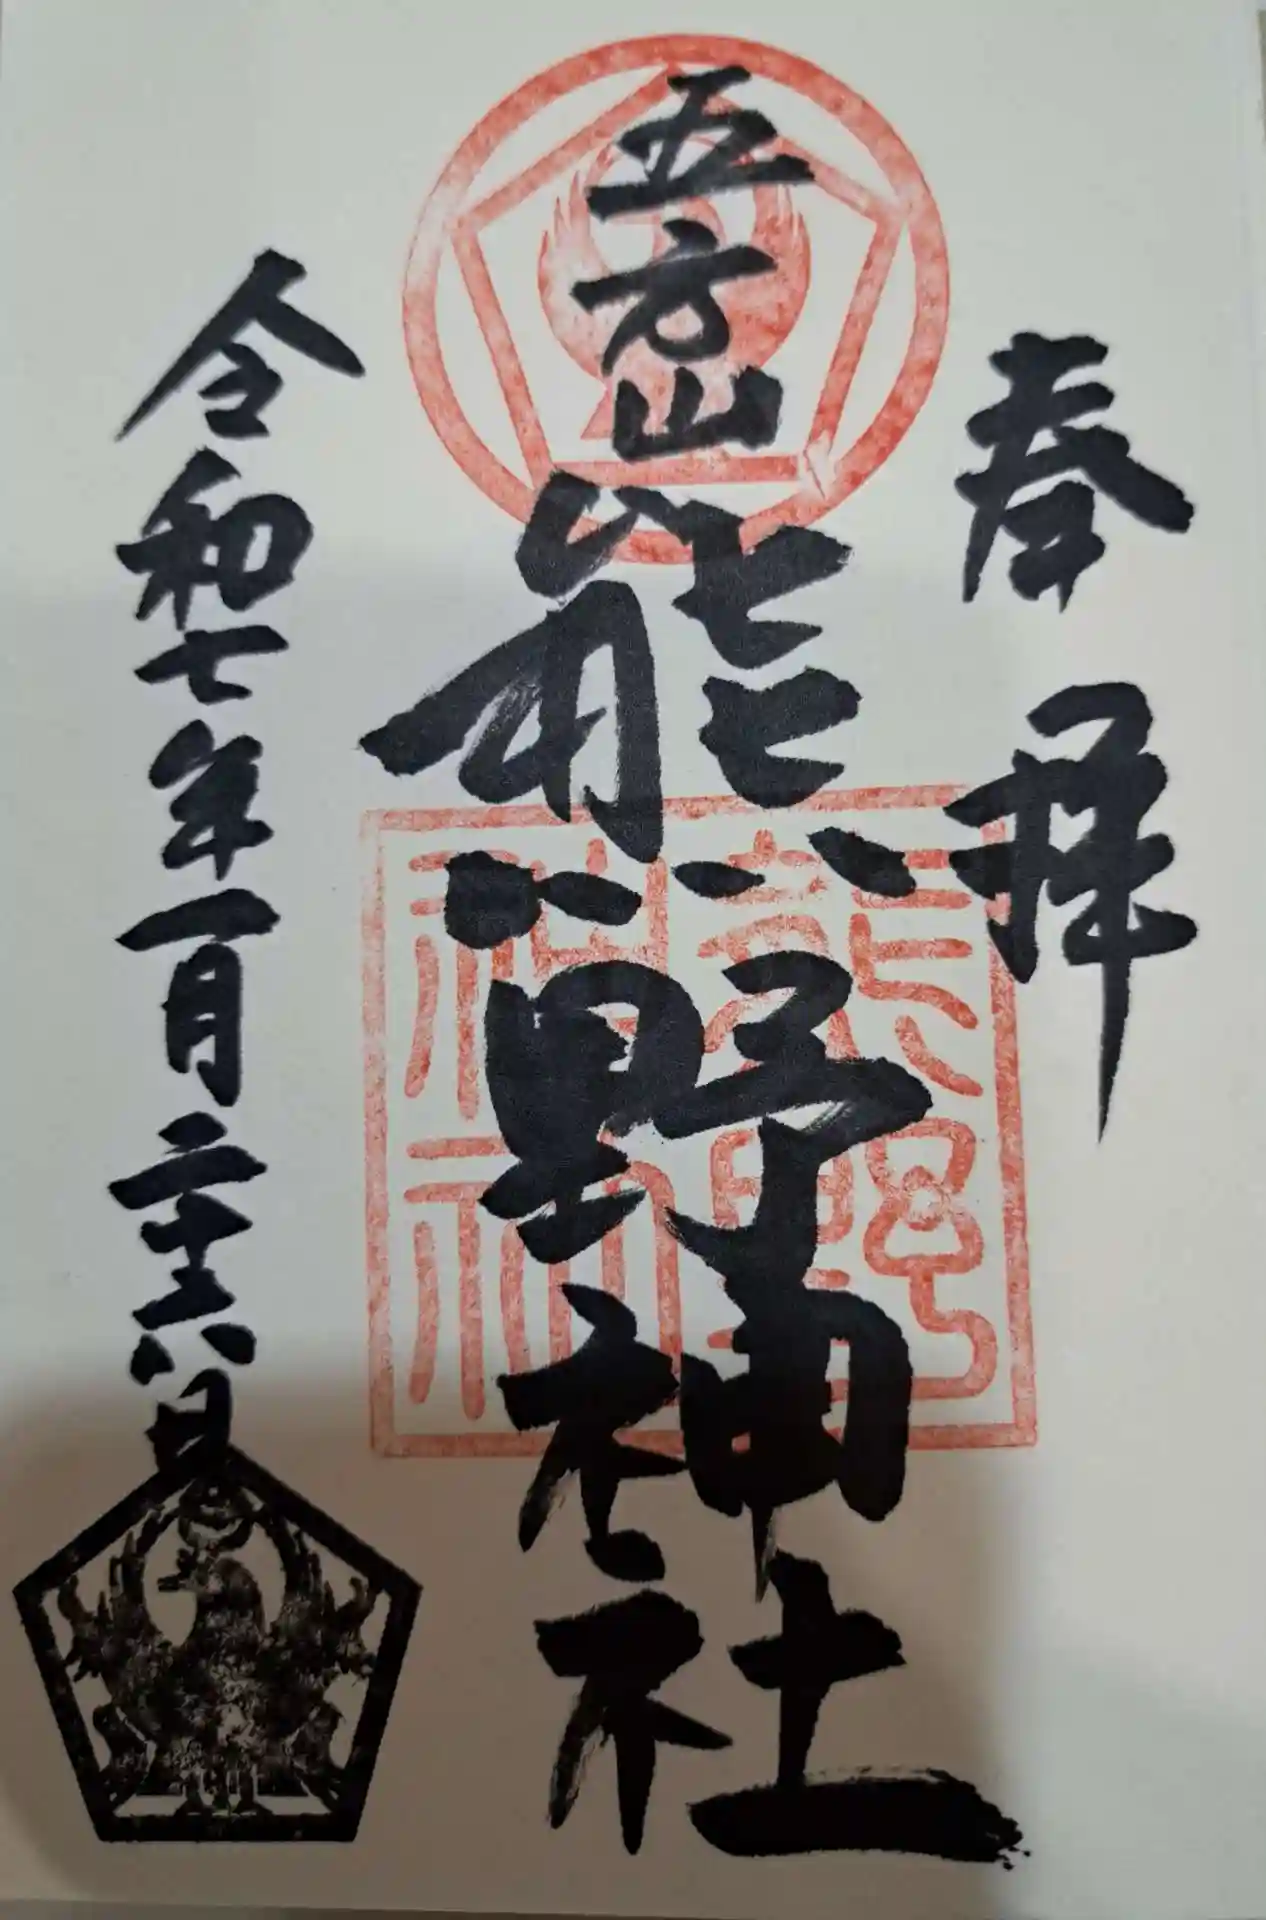 奉拝
五方山
熊野神社
令和七年一月二十六日
熊野神社